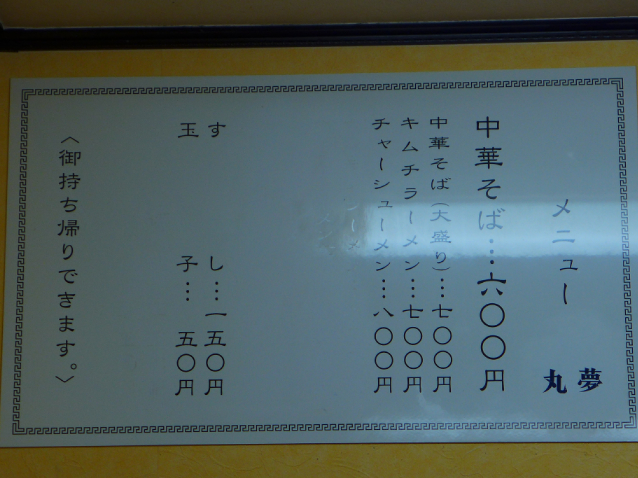 メニュー
夢丸
中華そば…六〇〇円
中華そば(大盛り)…七〇〇円
キムチラーメン…七〇〇円
チャーシューメン…八〇〇円
すし…一五〇円
玉子…五〇円
〈御持ち帰りできます。〉